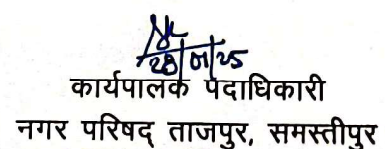 28/01/25
कार्यपालक पदाधिकारी
नगर परिषद् ताजपुर, समस्तीपुर